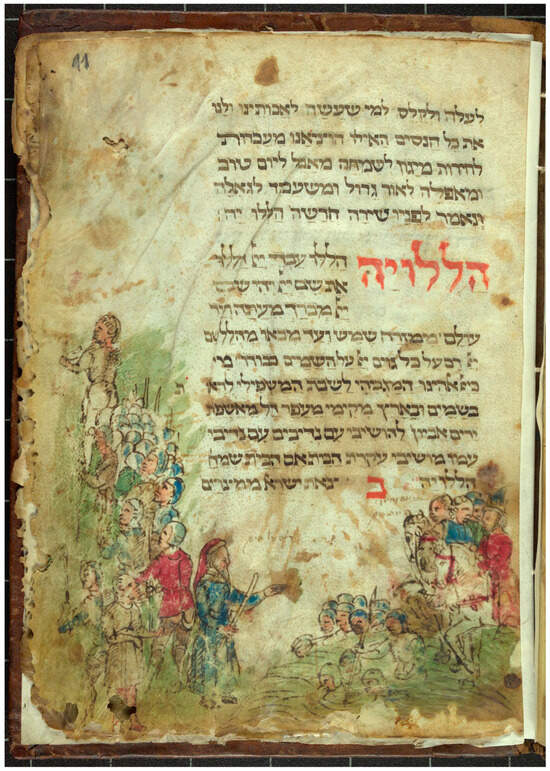 לעלה ולקלס למי שעשה לאבותינו ולנו
את כל הנסים האילו הוציאנו מעבדות
לחירות מיגון לשמחה מאבל ליום טוב
ומאפלה לאור גדול ומשעבוד לגאלה
ונאמר לפניו שירה חדשה הללו יה
הללויה הללו עבדי יי הללו
את שם יי יהי שם
יי מברך מעתה ועד
עולם ממזרח שמש ועד מבואו מהלל שם
יי רם על כל גוים יי על השמים כבודו מי
כיי אלהינו המגביהי לשבת המשפילי לראו
בשמים ובארץ מקימי מעפר דל מאשפת
ירים אביון להושיבי עם נדיבים עם נדיבי
עמו מושיבי עקרת הבית אם הבנים שמחה
הללויה ב